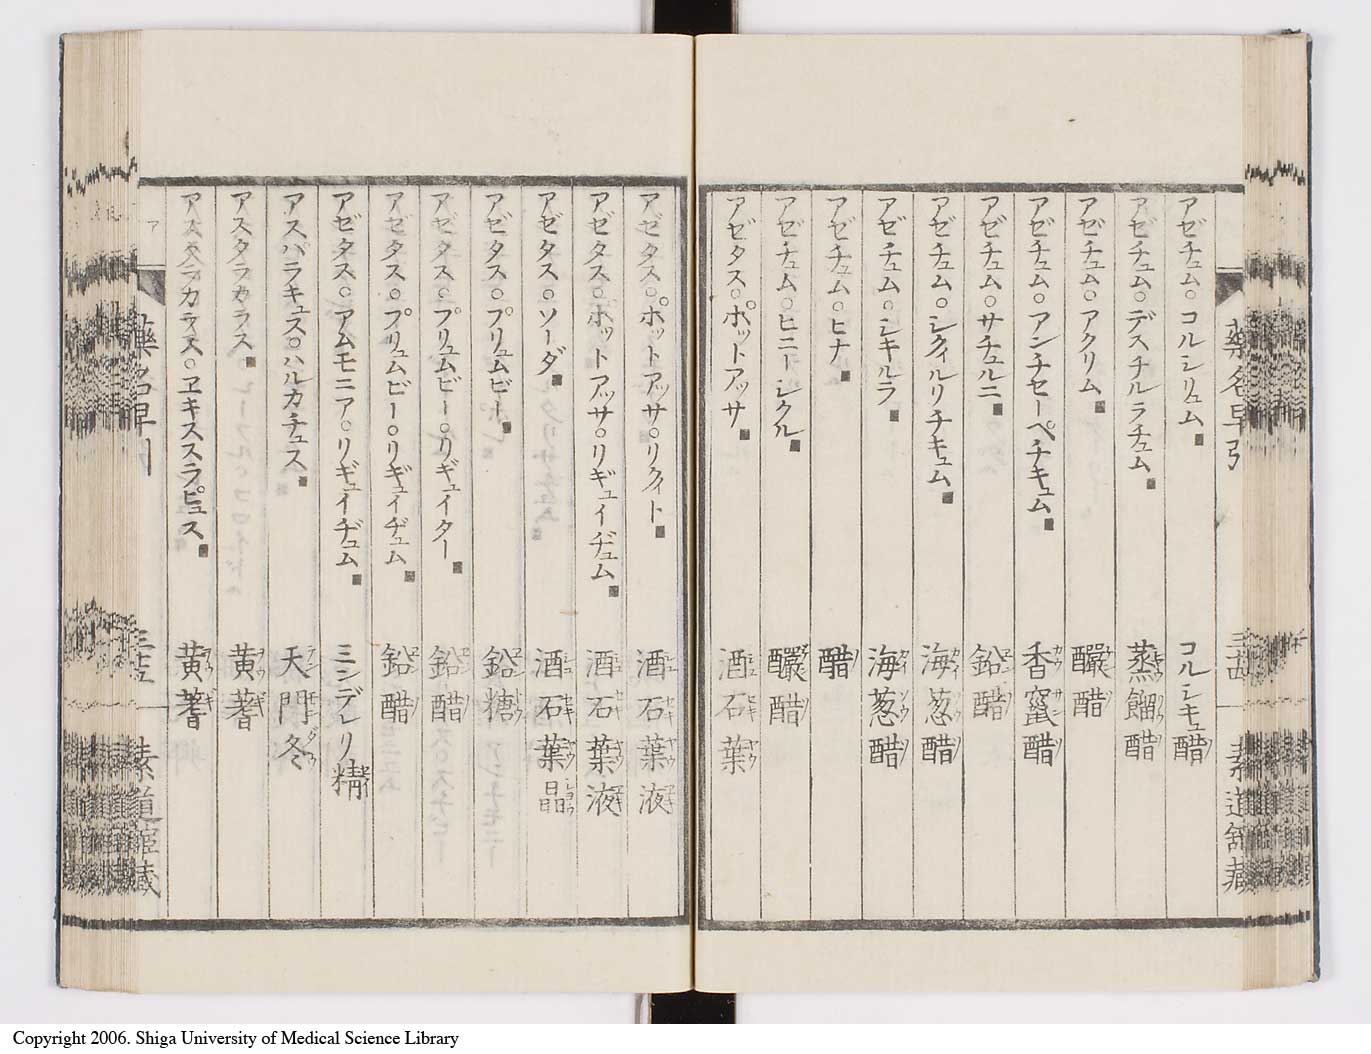 藥名早引
アゼチュム○コルシリュム■ コルシキュ醋
アゼチュム○デスチルラチュム■ 蒸餾醋
アゼチュム○アクリム■ 釅醋
アゼチュム○アンチセーペチキュム■ 香竄醋
アゼチュム○サチュルニ■ 鉛醋
アゼチュム○シクィルリチキュム■ 海葱醋
アゼチュム○シキルラ■ 海葱醋
アゼチュム○ヒナ■ 醋
アゼチュム○ヒニーシクル■ 釅醋
アゼタス○ポットアッサ■ 酒石葉
素道舘藏
アゼタス○ポットアッサ○リクィト■ 酒石葉液
アゼタス○ポットアッサ○リギュイヂュム■ 酒石葉液
アゼタス○ソーダ■ 酒石葉晶
アゼタス○プリュムビー■ 鉛糖
アゼタス○プリュムビー○リギュイター■ 鉛醋
アゼタス○プリュムビー○リギュイヂュム■ 鉛醋
アゼタス○アムモニア○リギュイヂュム■ ミンデレリ精
アスパラキュス○ハルカチュス■ 天門冬
アスタラカラス■ 黄蓍
アスタラカラス○ヱキススラピュス■ 黄蓍
ア
Copyright 2006. Shiga University of Medical Science Library